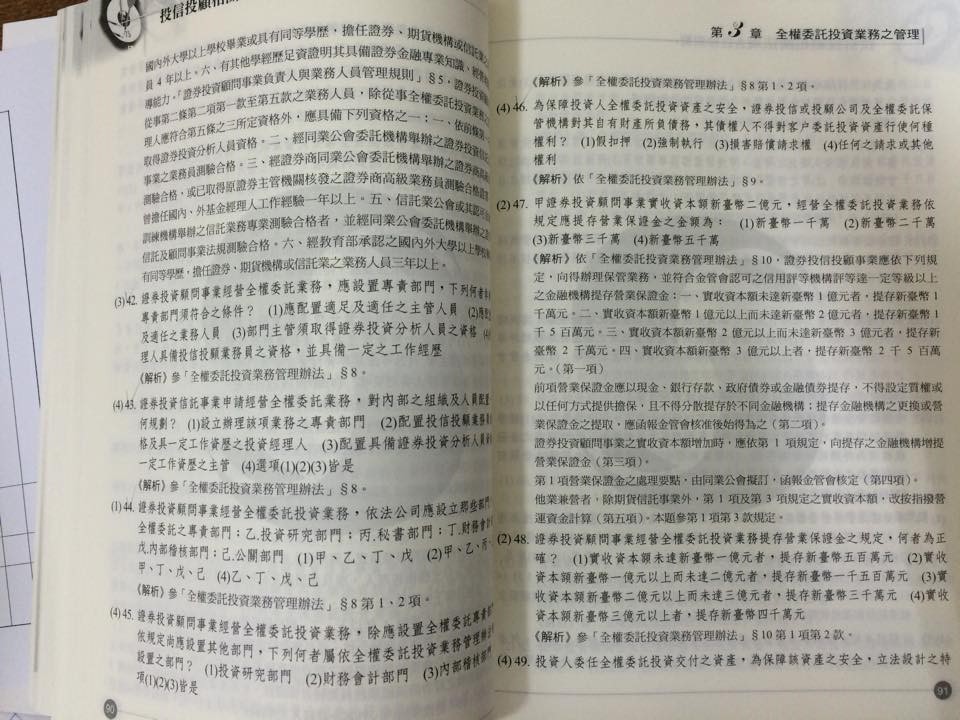 投信投顧相關
國內外大學以上學校畢業或具有同等學歷，擔任證券、期貨機構或信託業之
員 4 年以上。六、有其他學經歷足資證明其具備證券金融專業知識、經營
導能力。「證券投資顧問事業負責人與業務人員管理規則」§5，證券投資顧
從事第二條第二項第一款至第五款之業務人員，除從事全權委託投資業務之
理人應符合第五條之三所定資格外，應具備下列資格之一：一、依前條第
取得證券投資分析人員資格。二、經同業公會委託機構舉辦之證券投資信託
事業之業務員測驗合格。三、經證券商同業公會委託機構舉辦之證券商
測驗合格，或已取得原證券主管機關核發之證券商高級業務員測驗合格證
曾擔任國內、外基金經理人工作經驗一年以上。五、信託業公會或其認可
訓練機構舉辦之信託業務專業測驗合格者，並經同業公會委託機構舉辦之
信託及顧問事業法規測驗合格。六、經教育部承認之國內外大學以上學校
有同等學歷，擔任證券、期貨機構或信託業之業務人員三年以上。
(3)42. 證券投資顧問事業經營全權委託業務，應設置專責部門，下列何者
專責部門須符合之條件？ (1)應配置適足及適任之主管人員 (2)應
及適任之業務人員 (3)部門主管須取得證券投資分析人員之資格 (4)
理人具備投信投顧業務員之資格，並具備一定之工作經歷
《解析》參「全權委託投資業務管理辦法」§8。
(4)43. 證券投資信託事業申請經營全權委託業務，對內部之組織及人員配置
何規劃？ (1)設立辦理該項業務之專責部門 (2)配置投信投顧業務員
格及具一定工作資歷之投資經理人 (3)配置具備證券投資分析人員
一定工作資歷之主管 (4)選項(1)(2)(3)皆是
《解析》參「全權委託投資業務管理辦法」§8。
(1)44. 證券投資顧問事業經營全權委託投資業務，依法公司應設立那些部門
全權委託之專責部門；乙.投資研究部門；丙.秘書部門；丁.財務會計
戊.內部稽核部門；己.公關部門 (1)甲、乙、丁、戊 (2)甲、乙、丙、
甲、丁、戊、己 (4)乙、丁、戊、己
《解析》參「全權委託投資業務管理辦法」§8 第 1、2 項。
(4)45. 證券投資顧問事業經營全權委託投資業務，除應設置全權委託專責部
依規定尚應設置其他部門，下列何者屬依全權委託投資業務管理辦法
設置之部門？ (1)投資研究部門 (2)財務會計部門 (3)內部稽核部門
項(1)(2)(3)皆是
90
第 3 章 全權委託投資業務之管理
《解析》參「全權委託投資業務管理辦法」§8 第 1、2 項。
(4)46. 為保障投資人全權委託投資資產之安全，證券投信或投顧公司及全權委託保
管機構對其自有財產所負債務，其債權人不得對客戶委託投資資產行使何種
權利？ (1)假扣押 (2)強制執行 (3)損害賠償請求權 (4)任何之請求或其他
權利
《解析》依「全權委託投資業務管理辦法」§9。
(2)47. 甲證券投資顧問事業實收資本額新臺幣二億元，經營全權委託投資業務依
規定應提存營業保證金之金額為： (1)新臺幣一千萬 (2)新臺幣二千萬
(3)新臺幣三千萬 (4)新臺幣五千萬
《解析》依「全權委託投資業務管理辦法」§10，證券投信投顧事業應依下列規
定，向得辦理保管業務，並符合金管會認可之信用評等機構評等達一定等級以上
之金融機構提存營業保證金：一、實收資本額未達新臺幣 1 億元者，提存新臺幣 1
千萬元。二、實收資本額新臺幣 1 億元以上而未達新臺幣 2 億元者，提存新臺幣 1
千 5 百萬元。三、實收資本額新臺幣 2 億元以上而未達新臺幣 3 億元者，提存新
臺幣 2 千萬元。四、實收資本額新臺幣 3 億元以上者，提存新臺幣 2 千 5 百萬
元。（第一項）
前項營業保證金應以現金、銀行存款、政府債券或金融債券提存，不得設定質權或
以任何方式提供擔保，且不得分散提存於不同金融機構；提存金融機構之更換或營
業保證金之提取，應函報金管會核准後始得為之（第二項）。
證券投資顧問事業之實收資本額增加時，應依第 1 項規定，向提存之金融機構增提
營業保證金（第三項）。
第 1 項營業保證金之處理要點，由同業公會擬訂，函報金管會核定（第四項）。
他業兼營者，除期貨信託事業外，第 1 項及第 3 項規定之實收資本額，改按指撥營
運資金計算（第五項）。本題參第 1 項第 3 款規定。
(2)48. 證券投資顧問事業經營全權委託投資業務提存營業保證金之規定，何者為正
確？ (1)實收資本額未達新臺幣一億元者，提存新臺幣五百萬元 (2)實收
資本額新臺幣一億元以上而未達二億元者，提存新臺幣一千五百萬元 (3)實
收資本額新臺幣二億元以上而未達三億元者，提存新臺幣三千萬元 (4)實收
資本額新臺幣三億元以上者，提存新臺幣四千萬元
《解析》參「全權委託投資業務管理辦法」§10 第 1 項第 2 款。
(4)49. 投資人委任全權委託投資交付之資產，為保障該資產之安全，立法設計之特
91